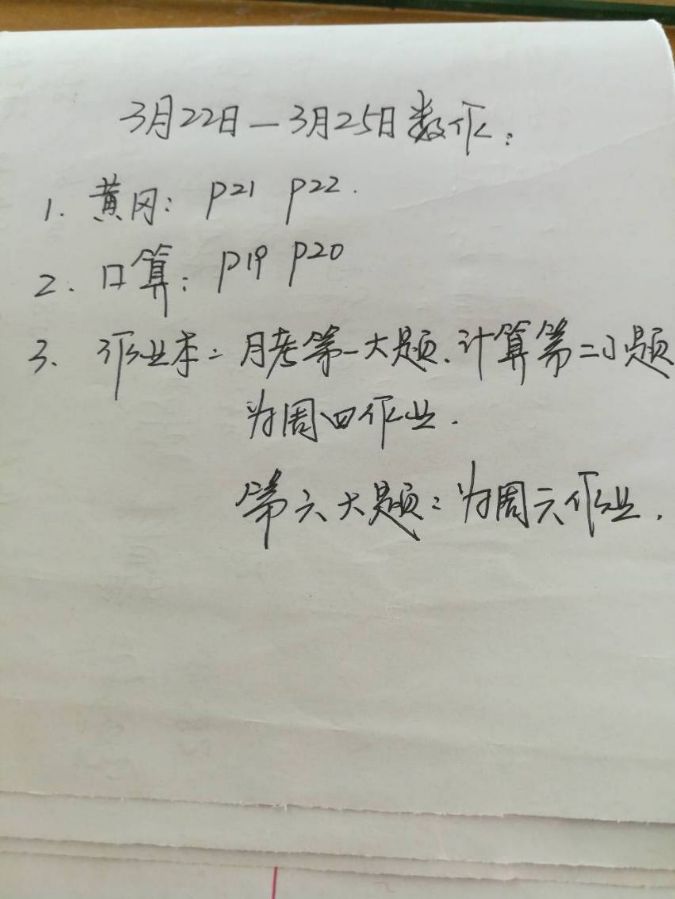 3月22日—3月25日数作：
1. 黄冈：P21 P22.
2. 口算：P19 P20
3. 作业本：月考第一大题、计算第二小题
为周四作业.
第六大题：为周六作业.